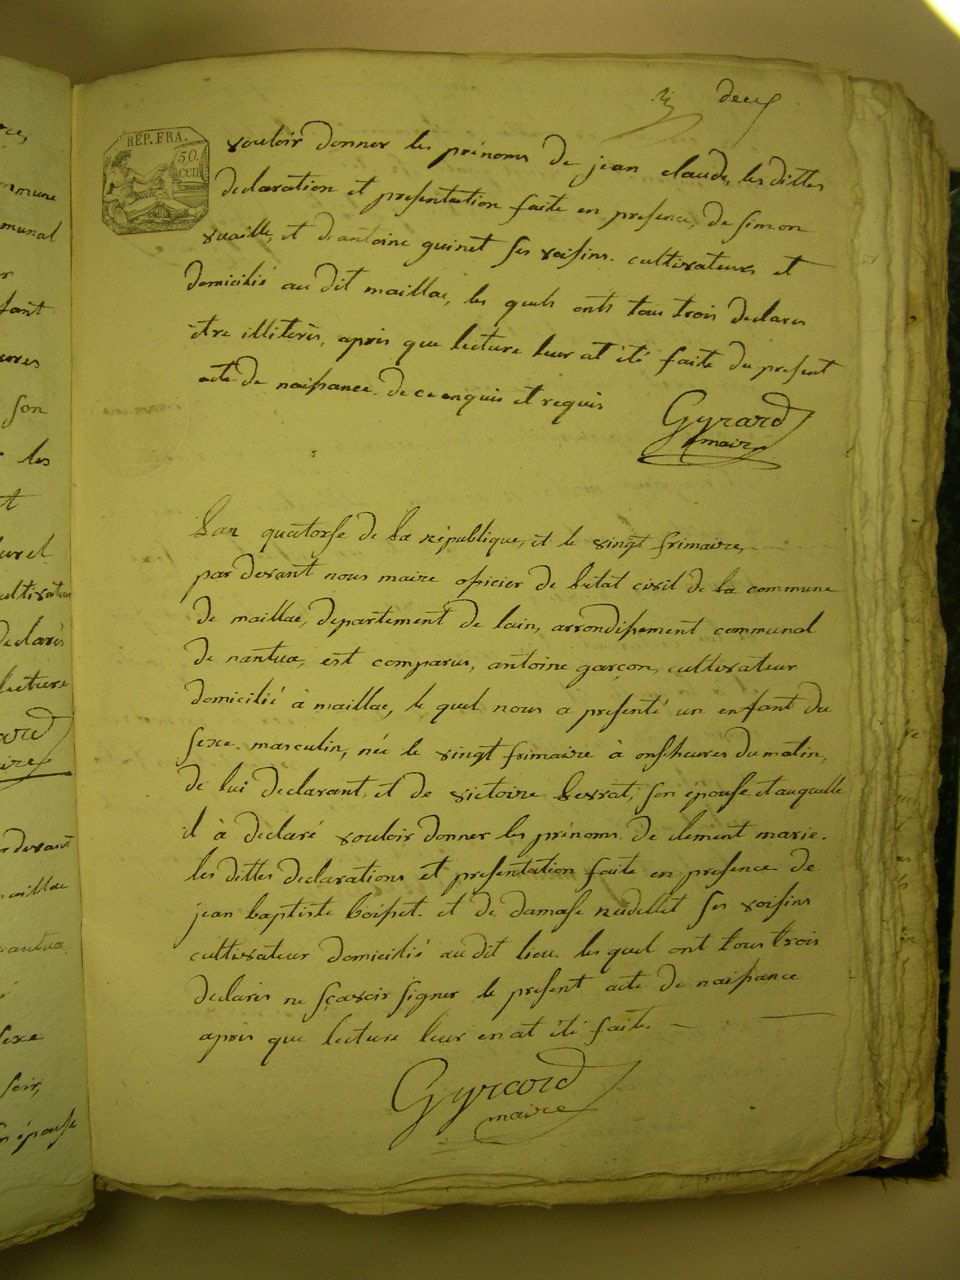 deux
RÉP. FRA.
50.
CEN
vouloir donner les prénoms de jean claude, les dittes
declaration et presentation faite en presence, de simon
vuaille, et d'antoine guinet ses voisins. cultivateurs et
domiciliés au dit maillac, les quels onts tous trois declares
être illiterés, apris que lecture leur at été faite du present
acte de naissance. de ce enquis et requis
Gyrard
maire
Lan quatorse de la république, et le vingt frimaire,
par devant nous maire oficier de l'état civil de la commune
de maillac, departement de lain, arrondissement communal
de nantua, est comparus, antoine garçon, cultivateur
domicilié à maillac, le quel nous a presenté un enfant du
sexe masculin, née le vingt frimaire à onse heures du matin,
de lui declarant, et de victoire son épouse et auquelle
il à declaré vouloir donner les prénoms de clement marie.
les dittes declarations et presentation faite en presence de
jean baptiste boisset. et de damase nudellet ses voisins
cultivateur domiciliés au dit lieu les quel ont tous trois
declarés ne sçavoir signer le present acte de naissance
apris que lecture leur en at été faite
Gyrard
maire
mmune
munal
fant
son
les
declarés
lecture
maillac
sexe
soir,
épouse